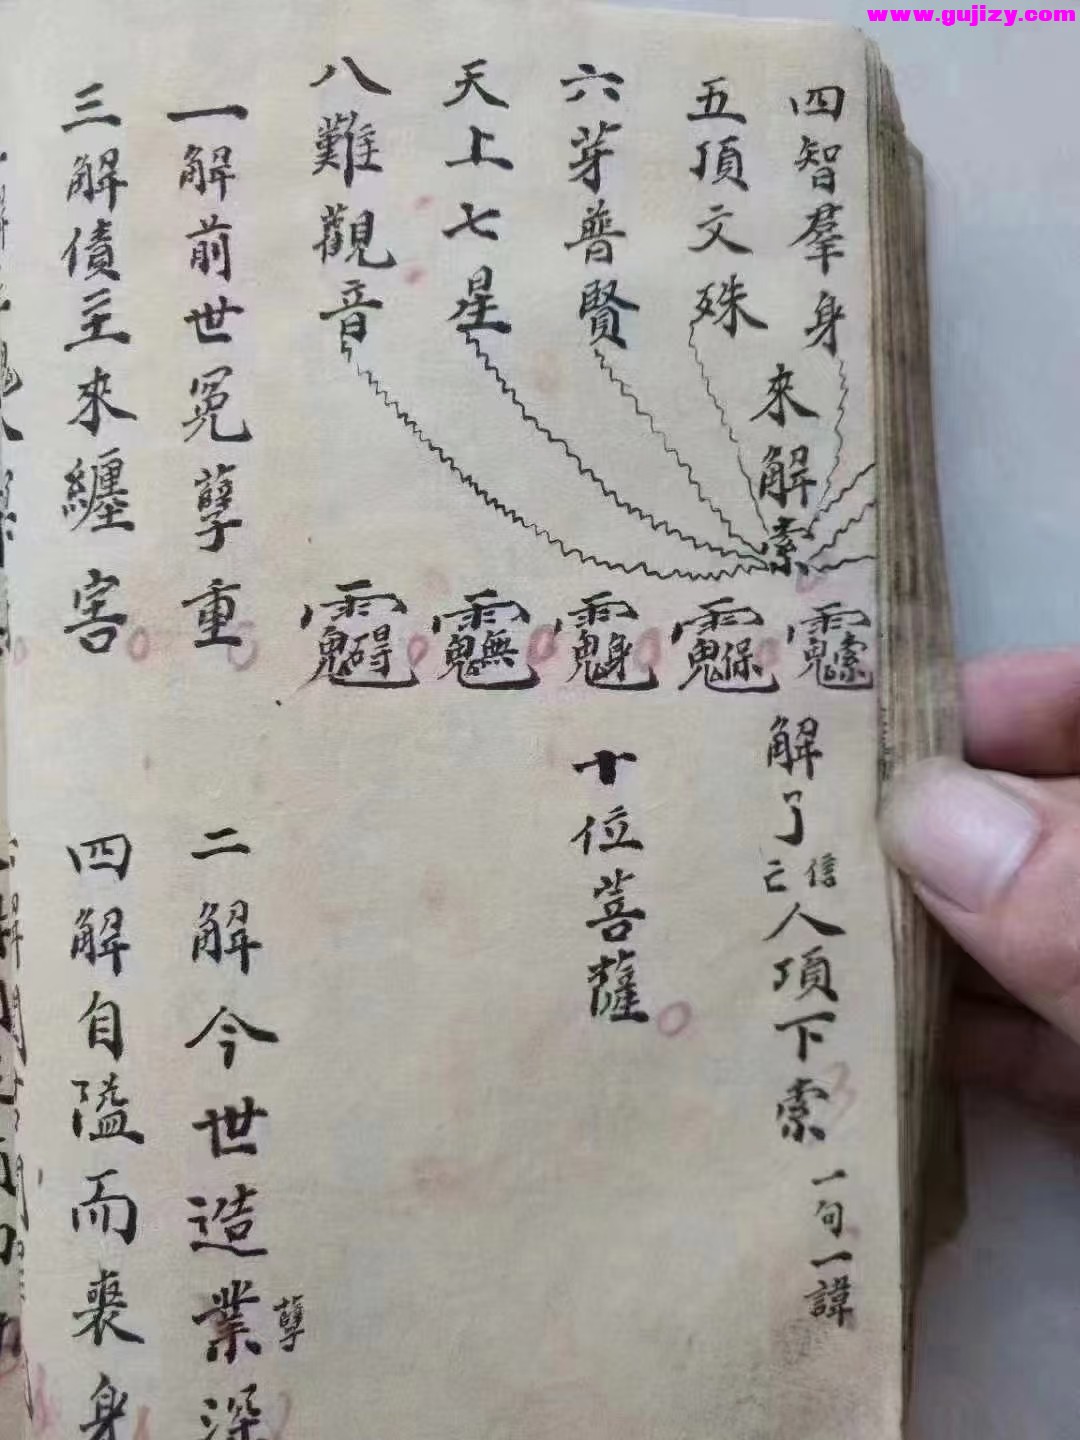 www.gujizy.com
四智羣身
五頂文殊
六芽普賢
天上七星
八難觀音
來解索
解了亡信人項下索
一句一諱
十位菩薩
一解前世冤孽重
二解今世造業深
孽
三解債主來纏害
四解自隘而喪身